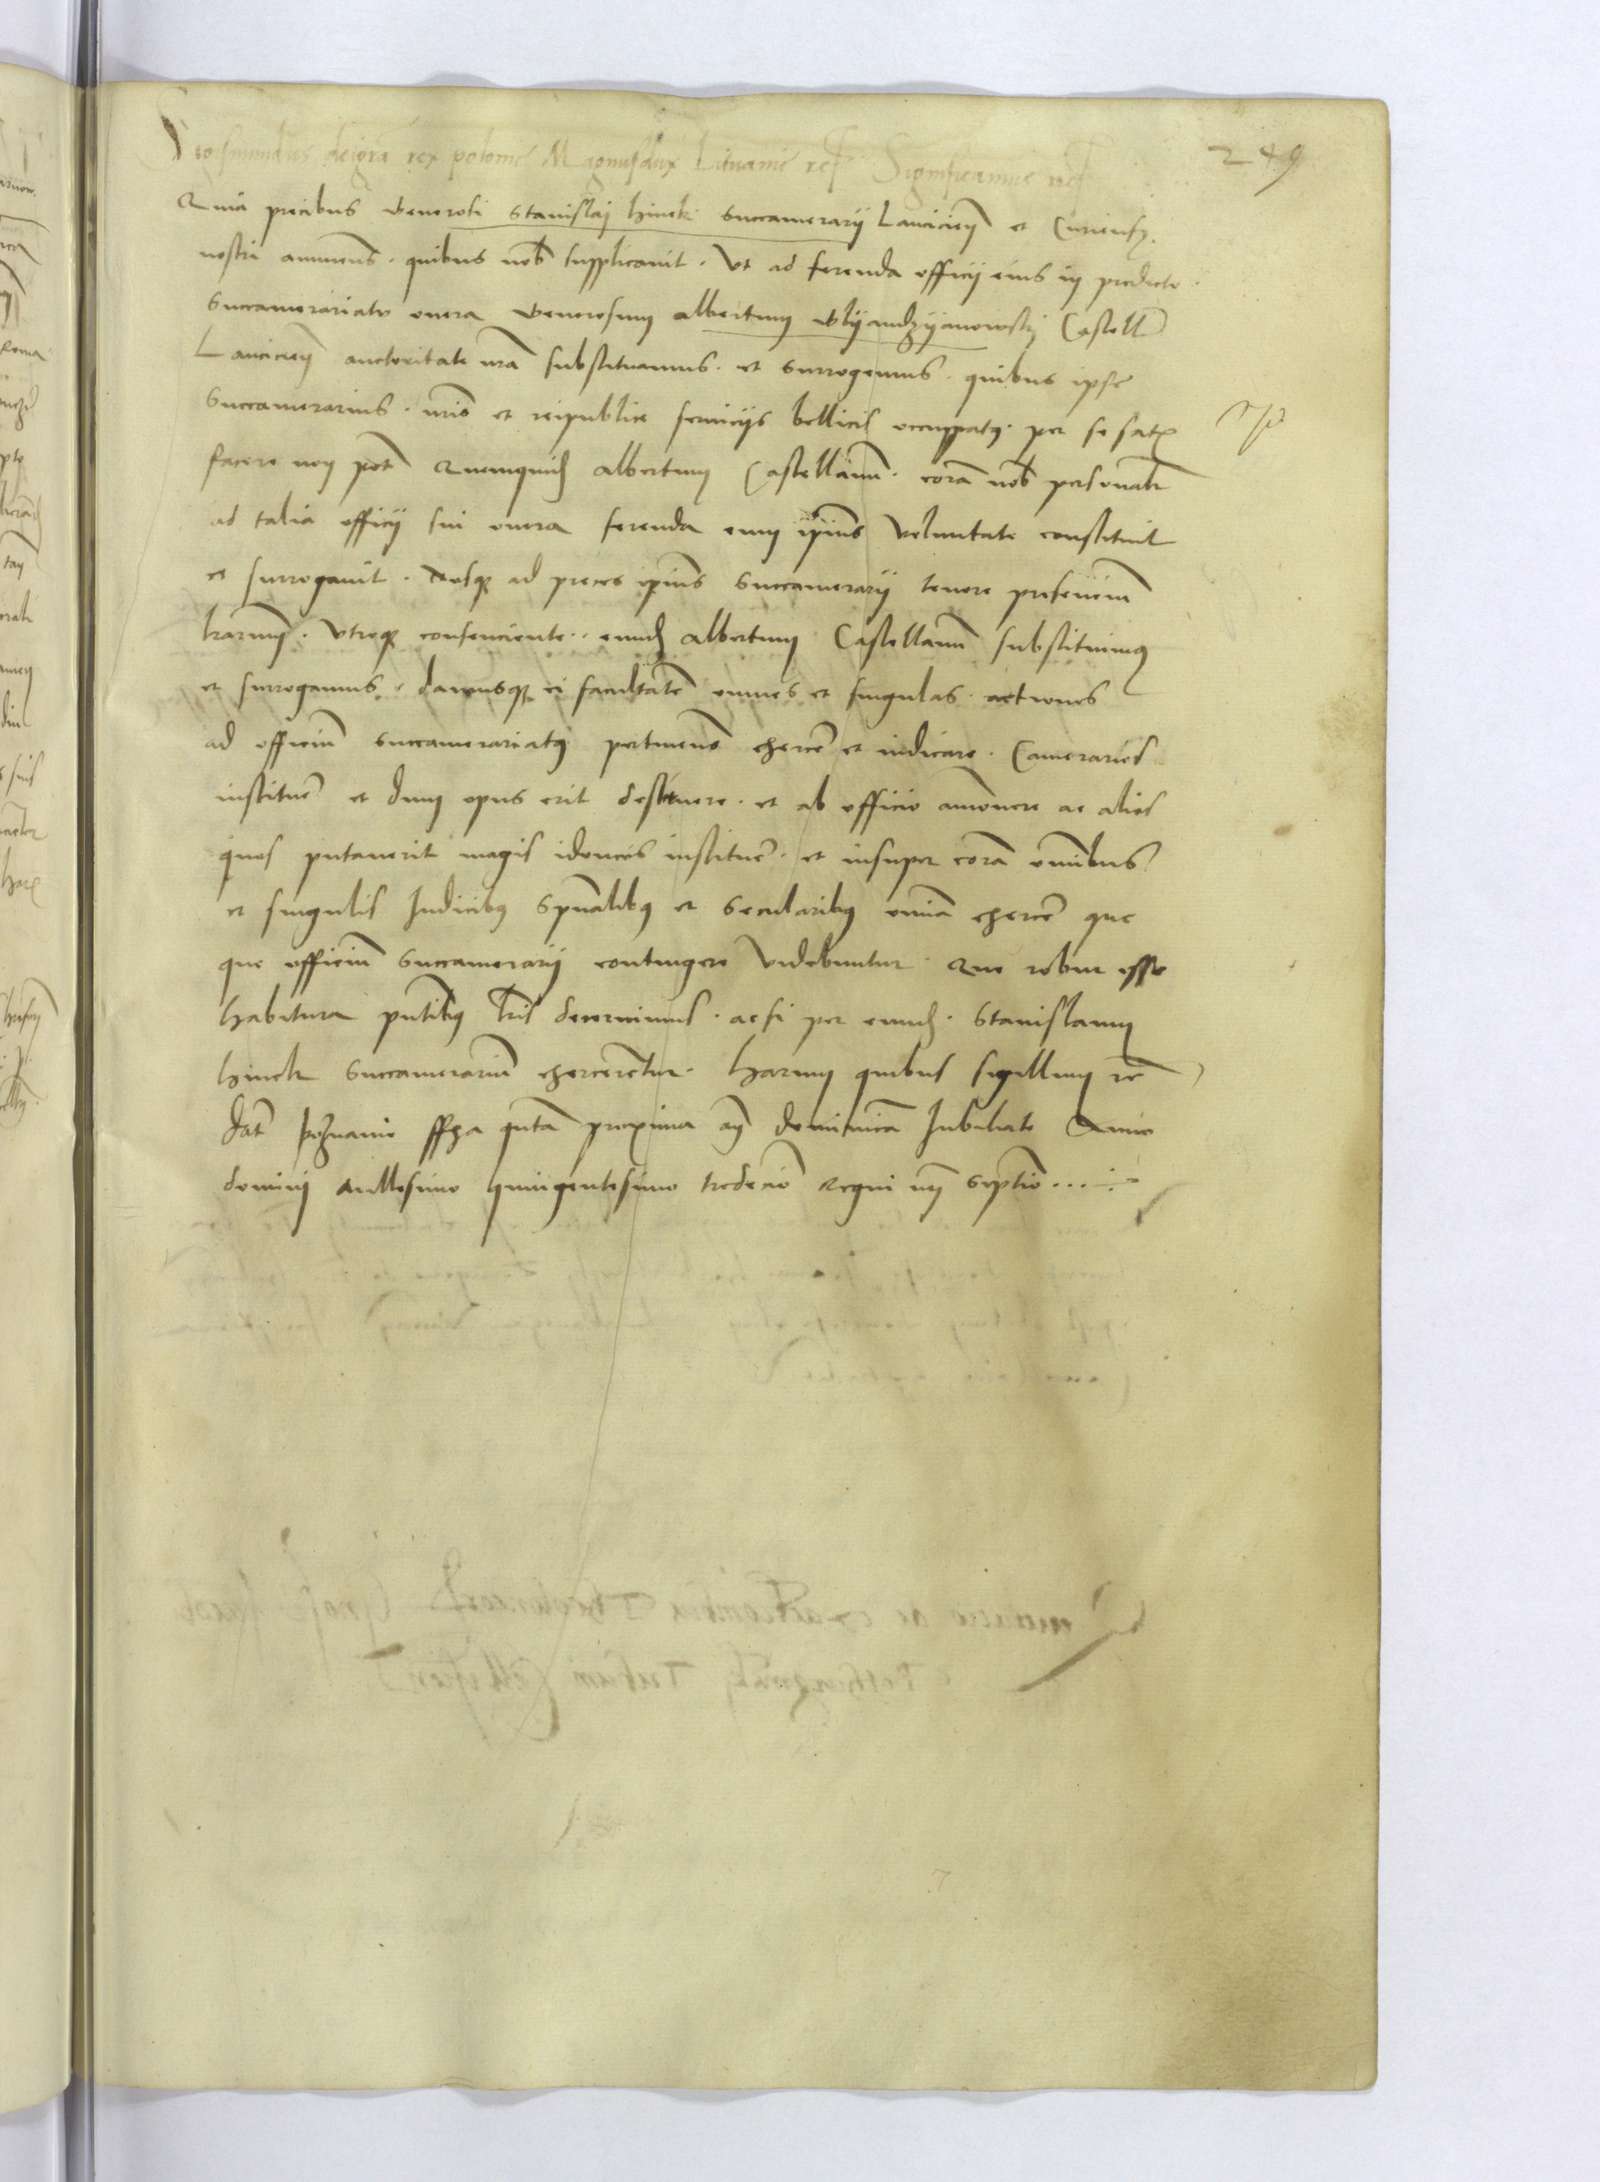 249
Sigismundus dei gra rex polonie Magnus dux Lituanie ret Significamus ret
Quia precibus Generosi Stanislaj hinek Succamerarij Lanciciens et Curiens
nostri annuens. quibus nob supplicauit. Ut ad ferenda officij eius in predicto
Succamerariatu onera Generosum albertum Castell
Lancicien auctoritate nra substituamus. et surrogemus. quibus ipse
Succamerarius. nris et reipublice seruicijs bellicis occupatus. per se satis
facere non pot Quemquid albertum Castellanum. coram nob personalr
ad talia officij sui onera ferenda cum ipius voluntate constituit
et surrogauit. Nosque ad preces ipius Succamerarij tenore presencium
lrarum. Utroque consenciente. eund albertum Castellanum substituimus
et surrogamus. damusque ei facultatem omnes et singulas actiones
ad officium succamerariatus pertinen exerce et iudicare. Camerarios
instituer et dum opus erit destituere. et ab officio amouere ac alios
quos putauerit magis idoneos instituer. et insuper coram omnibus
et singulis Iudicibus spualibus et secularibus omnia exercer que
que officium Succamerarij contingere videbuntur. Que robur esse
habitura pntibus lris decernimus. acsi per eund. Stanislaum
hinek Succamerarium exercerentur. harum quibus sigillum re
dat poznanie proxima an dominicam Jubilate Anno
domini millesimo quingentesimo tredecimo Regni nri septimo